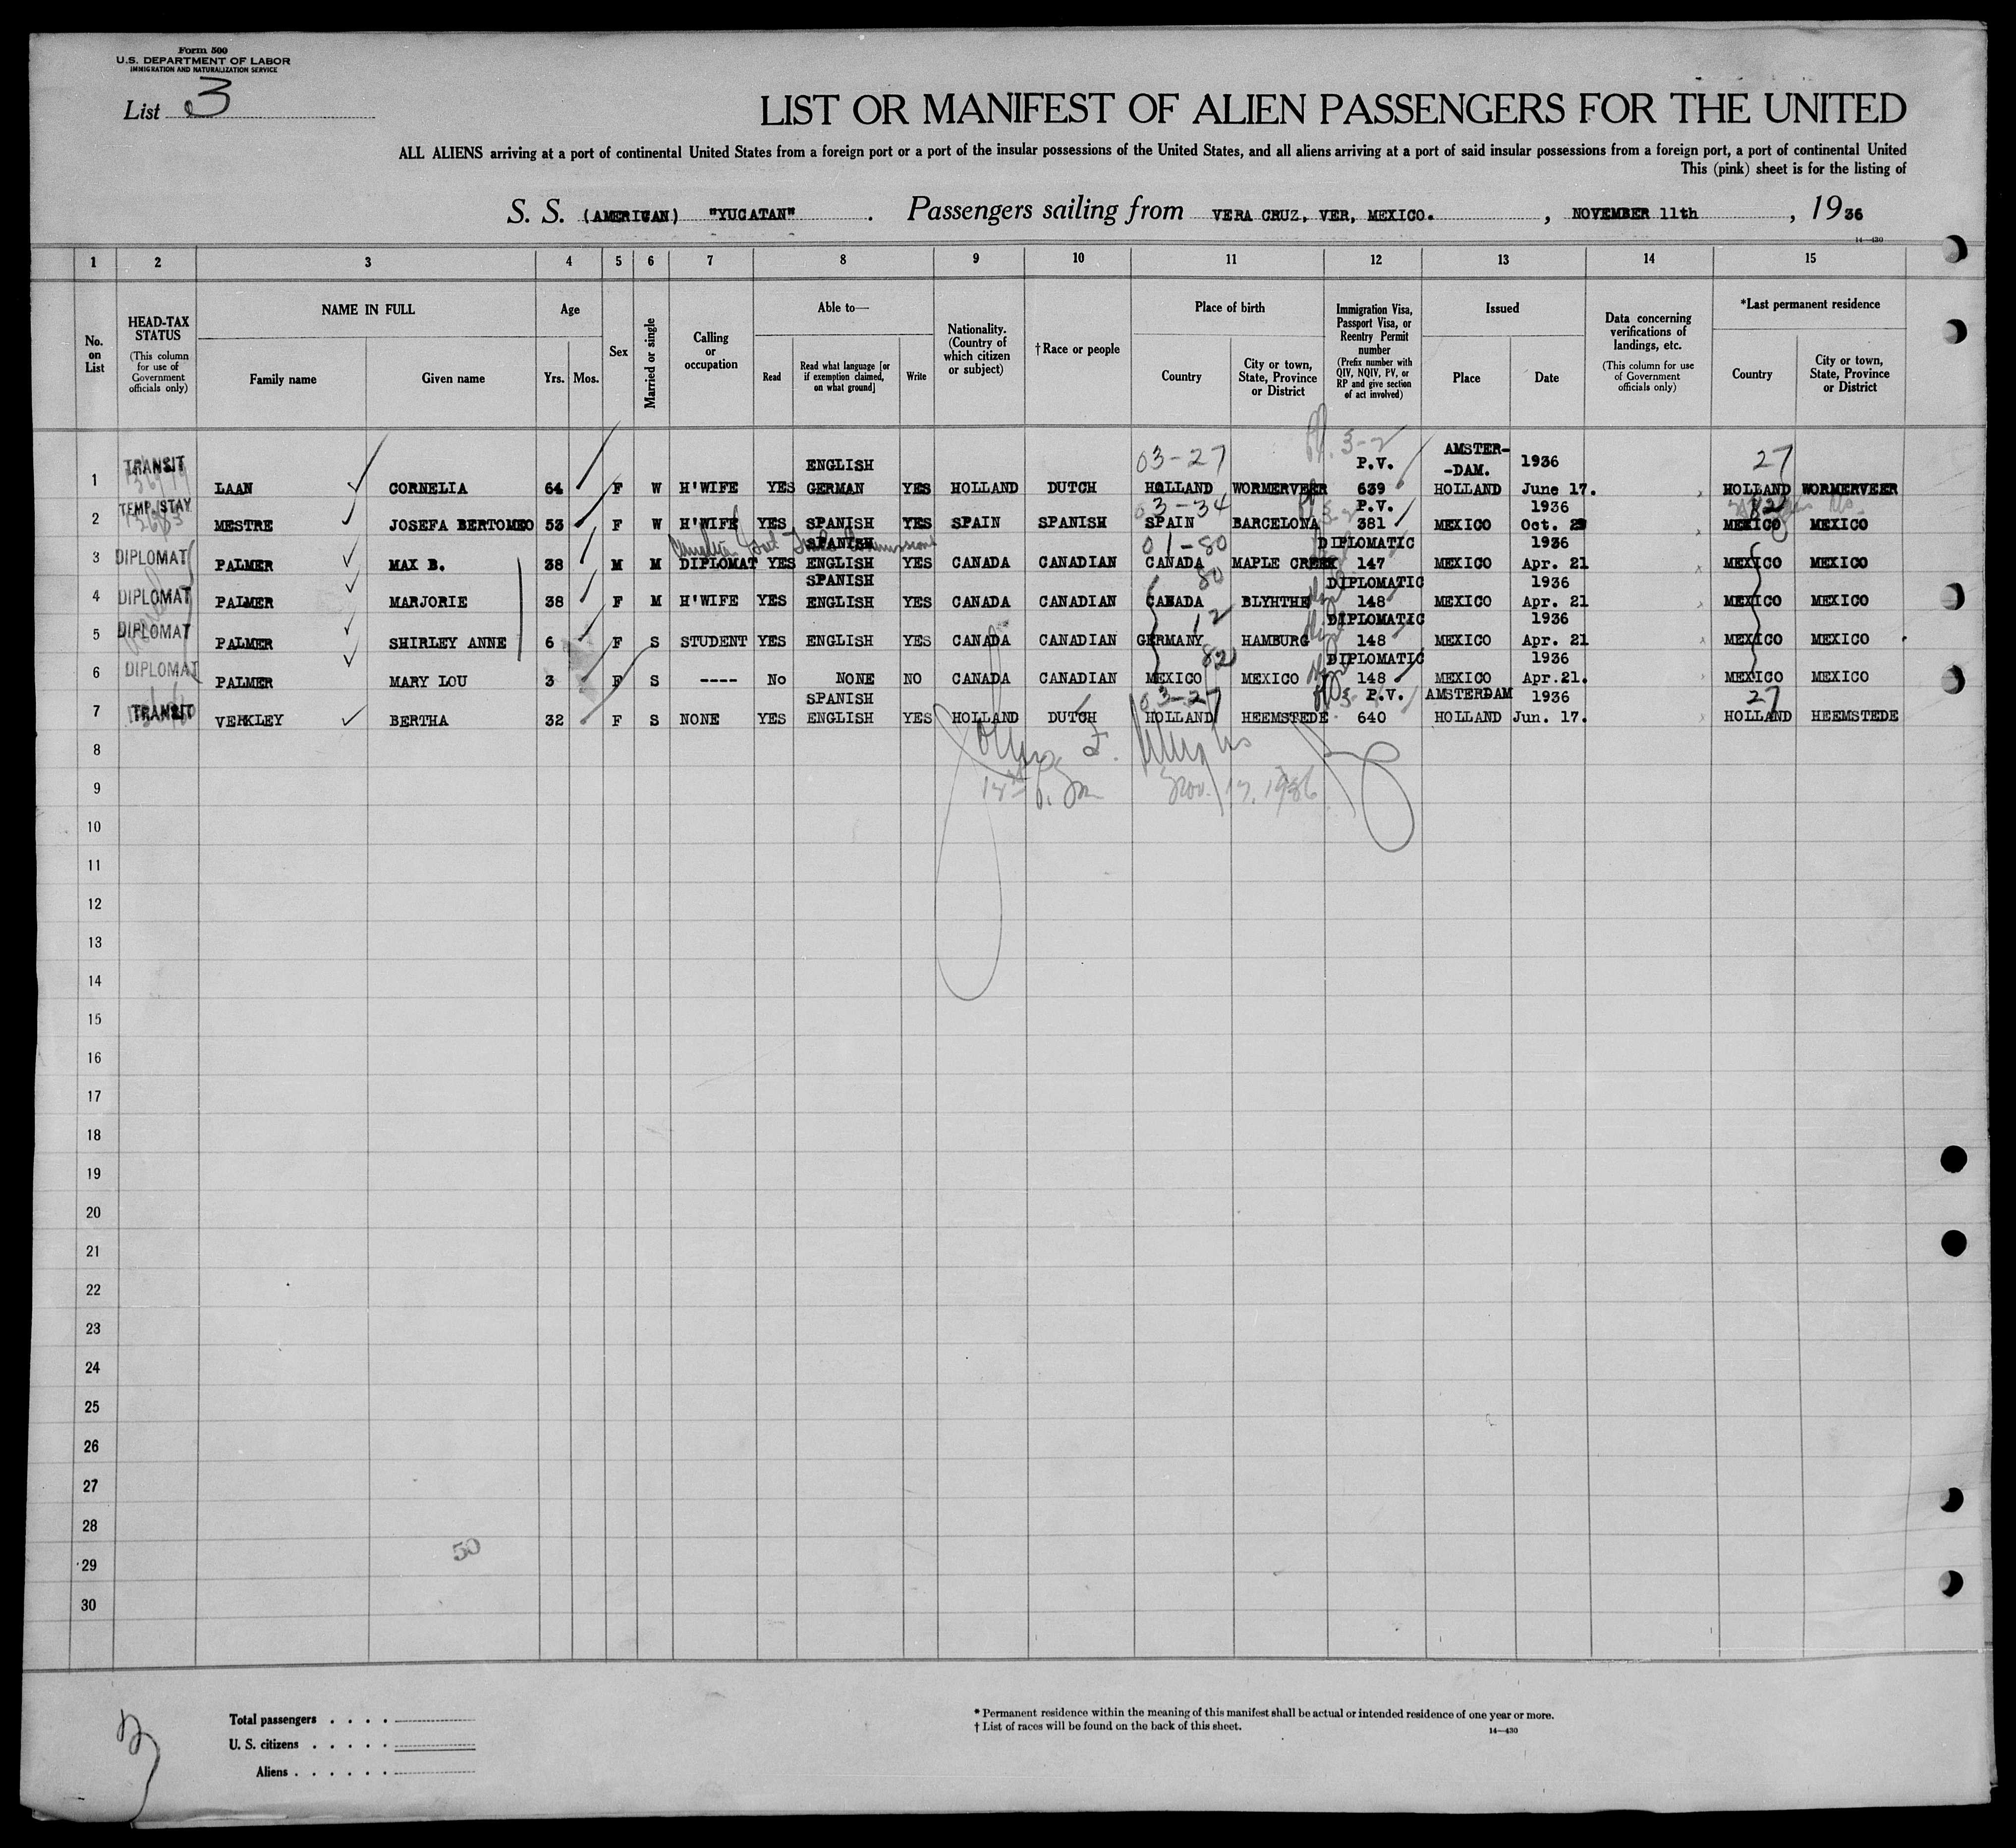 Form 500
U.S. DEPARTMENT OF LABOR
IMMIGRATION AND NATURALIZATION SERVICE
List 3
LIST OR MANIFEST OF ALIEN PASSENGERS FOR THE UNITED
ALL ALIENS arriving at a port of continental United States from a foreign port or a port of the insular possessions of the United States, and all aliens arriving at a port of said insular possessions from a foreign port, a port of continental United
This (pink) sheet is for the listing of
S. S. (AMERICAN) "YUCATAN" . Passengers sailing from VERA CRUZ, VER, MEXICO. , NOVEMBER 11th , 1936
14—430
1 2 3 4 5 6 7 8 9 10 11 12 13 14 15
No. on List
HEAD-TAX STATUS
(This column for use of Government officials only)
NAME IN FULL
Family name
Given name
Age
Yrs.
Mos.
Sex
Married or single
Calling or occupation
Able to—
Read
Read what language [or if exemption claimed, on what ground]
Write
Nationality. (Country of which citizen or subject)
†Race or people
Place of birth
Country
City or town, State, Province or District
Immigration Visa, Passport Visa, or Reentry Permit number
(Prefix number with QIV, NQIV, PV, or RP and give section of act involved)
Issued
Place
Date
Data concerning verifications of landings, etc.
(This column for use of Government officials only)
*Last permanent residence
Country
City or town, State, Province or District
TRANSIT ENGLISH 03-27 3-2 P.V. AMSTER- -DAM. 1936 27
1 LAAN CORNELIA 64 F W H'WIFE YES GERMAN YES HOLLAND DUTCH HOLLAND WORMERVEER 639 HOLLAND June 17. HOLLAND WORMERVEER
TEMP STAY 03-34 P.V. 1936 82
2 MESTRE JOSEFA BERTOMEO 53 F W H'WIFE YES SPANISH YES SPAIN SPANISH SPAIN BARCELONA 381 MEXICO Oct. MEXICO MEXICO
SPANISH 01-80 DIPLOMATIC 1936
3 DIPLOMAT PALMER MAX B. 38 M M DIPLOMAT YES ENGLISH YES CANADA CANADIAN CANADA MAPLE CREEK 147 MEXICO Apr. 21 MEXICO MEXICO
SPANISH 80 DIPLOMATIC 1936
4 DIPLOMAT PALMER MARJORIE 38 F M H'WIFE YES ENGLISH YES CANADA CANADIAN CANADA BLYHTHE 148 MEXICO Apr. 21 MEXICO MEXICO
12 DIPLOMATIC 1936
5 DIPLOMAT PALMER SHIRLEY ANNE 6 F S STUDENT YES ENGLISH YES CANADA CANADIAN GERMANY HAMBURG 148 MEXICO Apr. 21 MEXICO MEXICO
82 DIPLOMATIC 1936
6 DIPLOMAT PALMER MARY LOU 3 F S ---- No NONE NO CANADA CANADIAN MEXICO MEXICO 148 MEXICO Apr.21. MEXICO MEXICO
SPANISH 03-27 P.V. AMSTERDAM 1936 27
7 TRANSIT VERKLEY BERTHA 32 F S NONE YES ENGLISH YES HOLLAND DUTCH HOLLAND HEEMSTEDE 640 HOLLAND Jun. 17. HOLLAND HEEMSTEDE
8
9 Nov. 17, 1936
10
11
12
13
14
15
16
17
18
19
20
21
22
23
24
25
26
27
28
50
29
30
3
Total passengers . . . .
U. S. citizens . . . . .
Aliens . . . . . .
* Permanent residence within the meaning of this manifest shall be actual or intended residence of one year or more.
† List of races will be found on the back of this sheet.
14—430